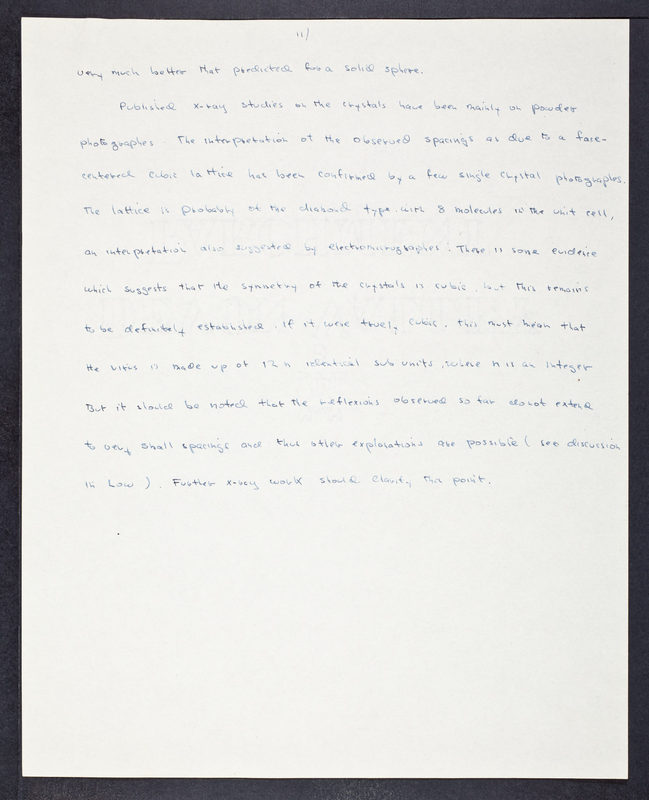 11/
very much better that predicted for a solid sphere.
Published x-ray studies on the crystals have been mainly on powder
photographes. The interpretation of the observed spacings as due to a face-
centered cubic lattice has been confirmed by a few single crystal photographes.
The lattice is probably of the diamond type with 8 molecules in the unit cell,
an interpretation also suggested by electromicrographes. There is some evidence
which suggests that the symmetry of the crystals is cubic, but this remains
to be definitely established. If it were truely cubic, this must mean that
the virus is made up of 12 n identical sub units, where n is an integer
But it should be noted that the reflexions observed so far do not extend
to very small spacings and thus other explanations are possible (see discussion
in Low). Further x-ray work should clarify this point.